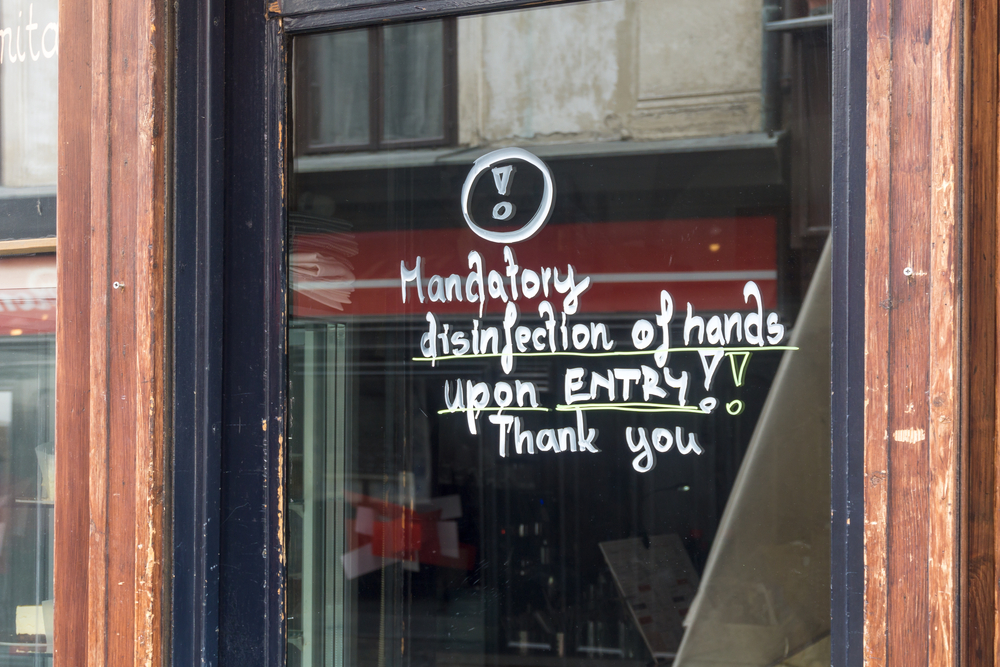 !
Mandatory
disinfection of hands
upon ENTRY!!
Thank you